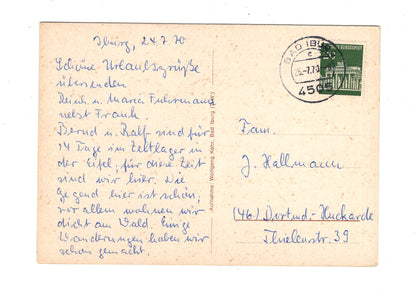 Iburg, 24.7.70
Schöne Urlaubsgrüße
übersenden
Heinr. u. Maria Fuhrmann
nebst Frank.
Bernd u. Ralf sind für
14 Tage im Zeltlager in
der Eifel, für diese Zeit
sind wir hier. Die
Gegend hier ist schön,
vor allem wohnen wir
dicht am Wald. Einige
Wanderungen haben wir
schon gemacht.
Aufnahme: Wolfgang Kehr, Bad Iburg
BAD IBURG
-7.70
4505
Fam.
J. Hallmann
(46) Dortmd.-Huckarde
Thielenstr. 39